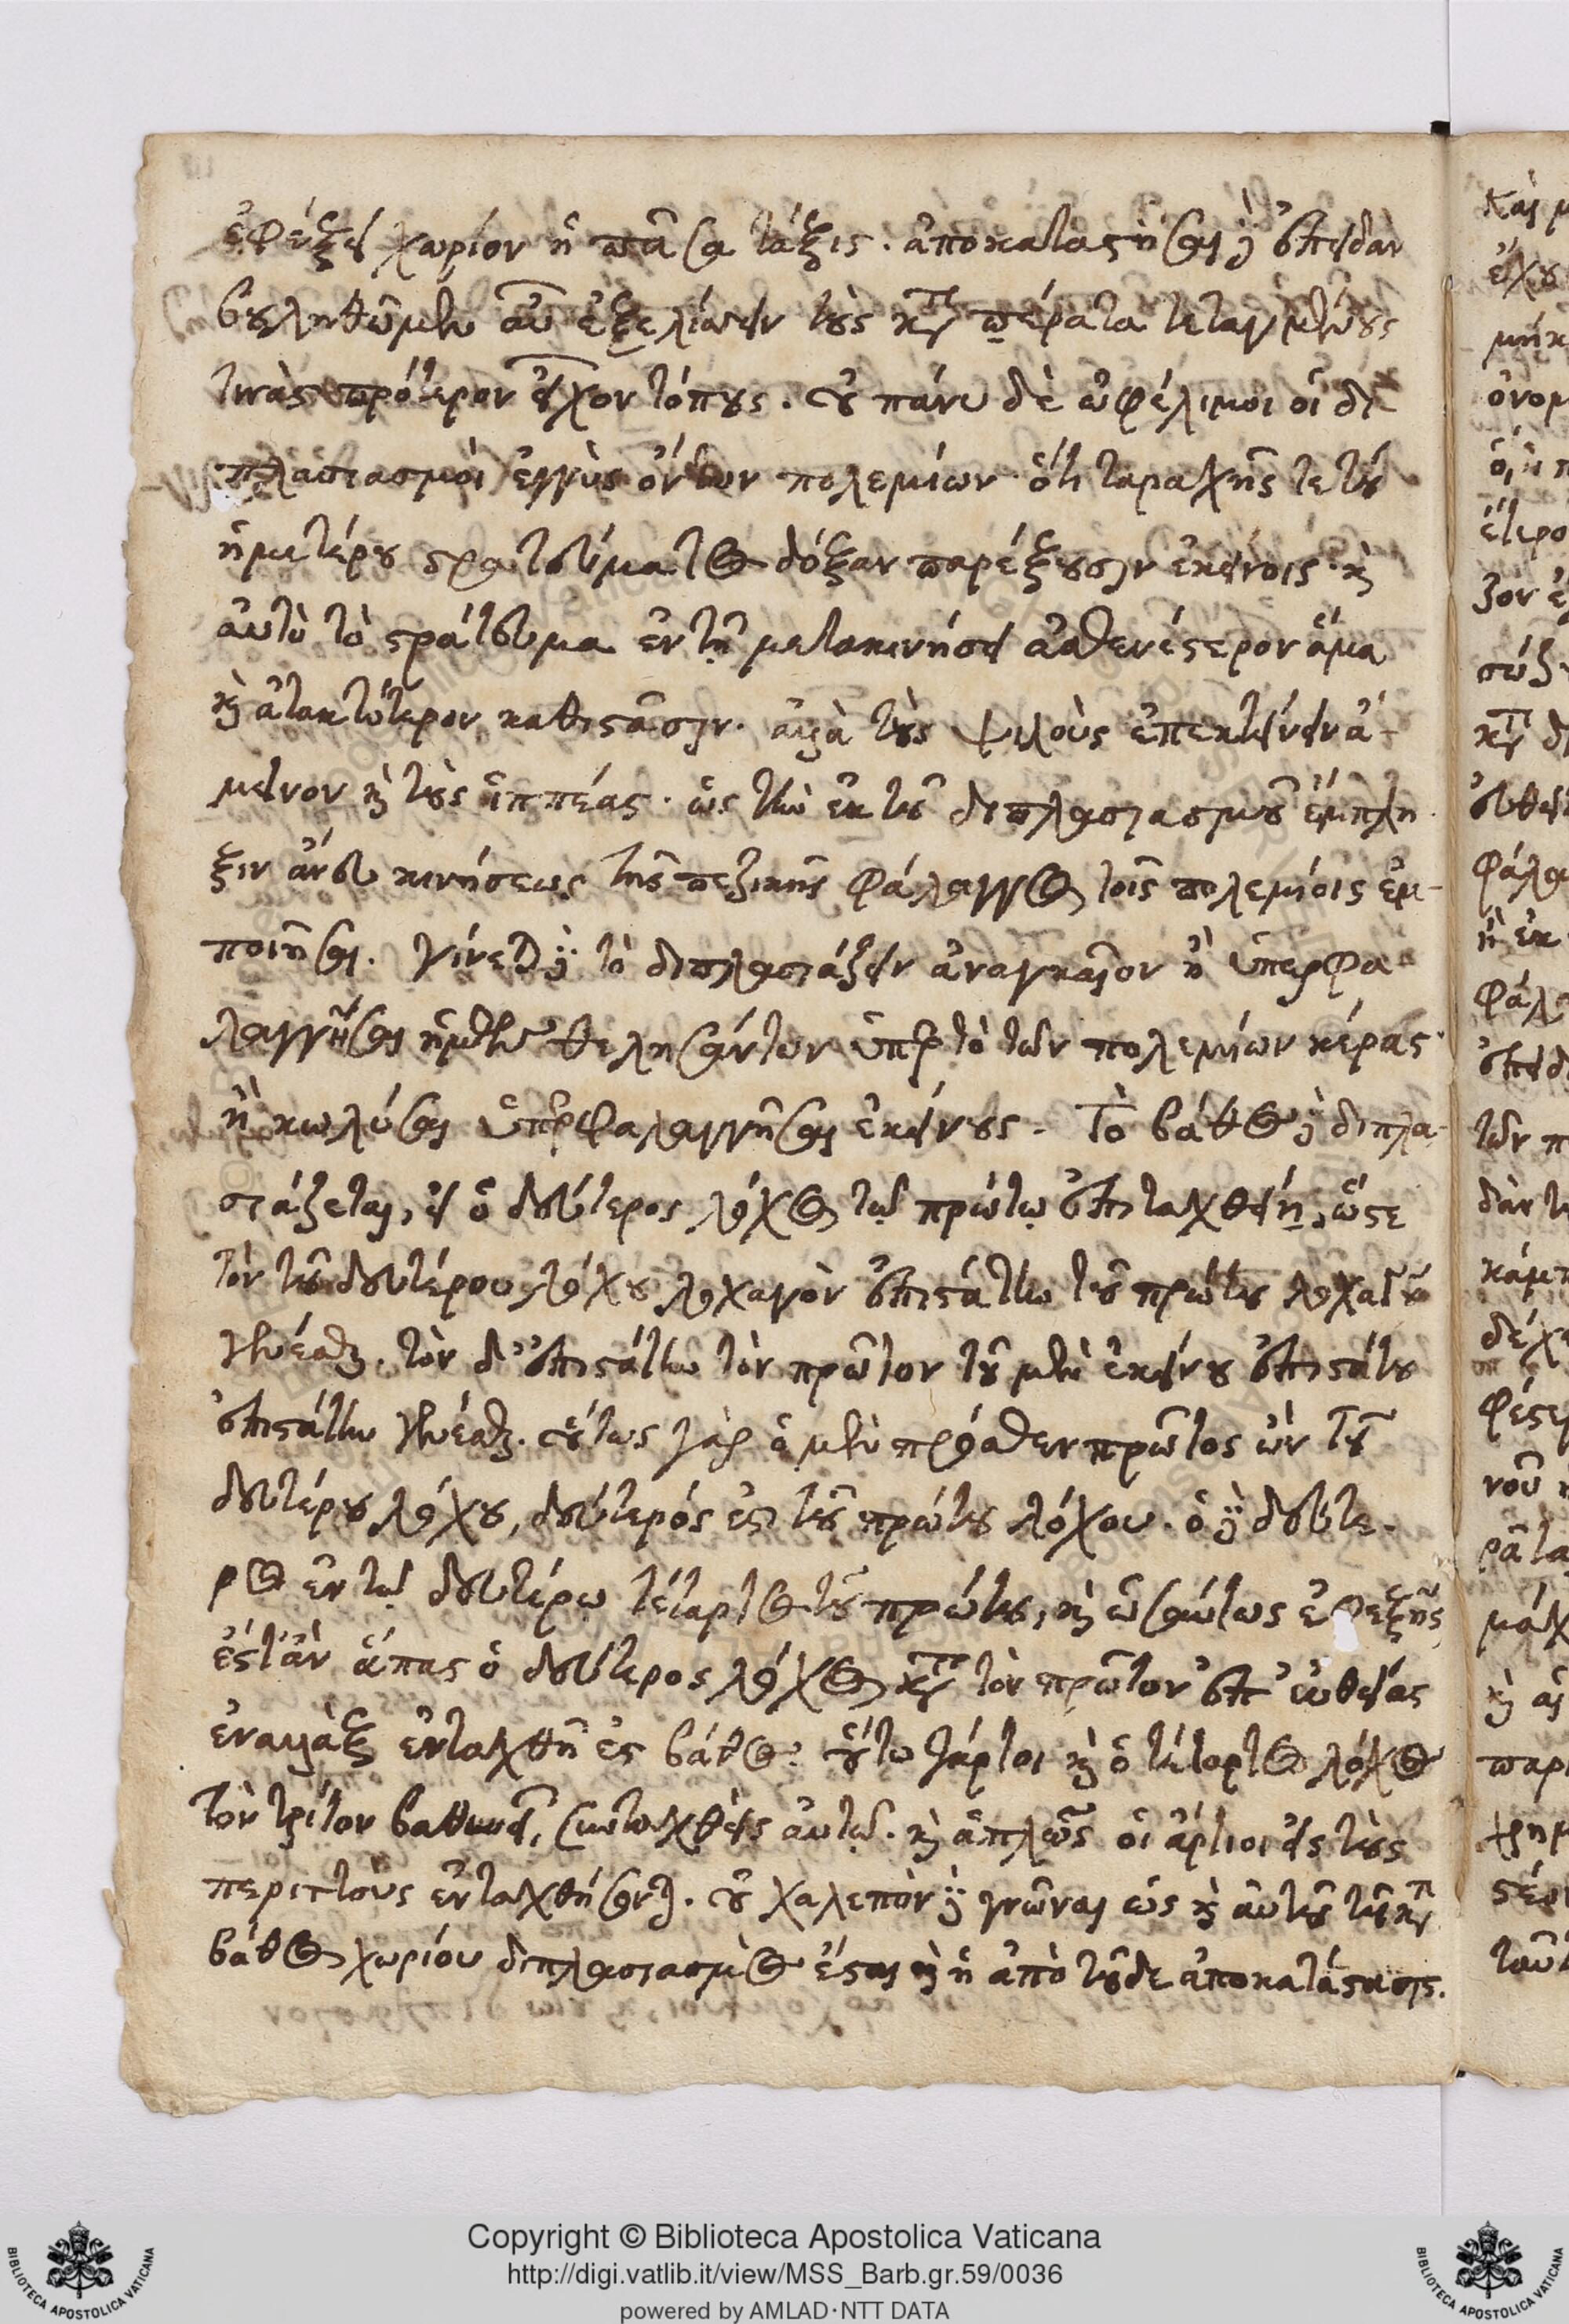 ἐφέξει χωρίον ἡ πᾶσα τάξις. ἀποκαταστῆσαι δὲ ἐπειδὰν
βουληθῶμεν αὖ ἐξελίσσειν τοὺς κατὰ πέρατα τεταγμένους
τινὰς πρότερον εἶχον τόπους. οὐ πάνυ δὲ ὠφέλιμοι οἱ δι-
πλασιασμοὶ ἐγγὺς ὄντων πολεμίων ὅτι ταραχῆς τε τοῦ
ἡμετέρου στρατεύματος δόξαν παρέξουσιν ἐκείνοις καὶ
αὐτὸ τὸ στράτευμα ἐν τῇ μετακινήσει ἀσθενέστερον ἅμα
καὶ ἀτακτότερον καθιστᾶσιν. ἀλλὰ τοὺς ψιλοὺς ἐπεκτείνειν ἀ-
μεινον καὶ τοὺς ἱππέας. ὡς τὴν ἐκ τοῦ διπλασιασμοῦ ἔμπλη-
ξιν ἄνευ κινήσεως τῆς πεζικῆς φάλαγγος τοῖς πολεμίοις ἐμ-
ποιῆσαι. γίνεται δὲ τὸ διπλασιάζειν ἀναγκαῖον ἢ ὑπερφα-
λαγγῆσαι ἡμῶν θελησάντων ὑπὲρ τὸ τῶν πολεμίων κέρας
ἢ κωλύσαι ὑπερφαλαγγῆσαι ἐκείνους. Τὸ βάθος δὲ διπλα-
σιάζεται, εἰ ὁ δεύτερος λόχος τῷ πρώτῳ ἐπιταχθείη, ὥστε
τὸν τοῦ δευτέρου λόχου λοχαγὸν ἐπιστάτην τοῦ πρώτου λοχαγοῦ
γενέσθαι. τὸν δ' ἐπιστάτην τὸν πρῶτον τοῦ μὲν ἐκείνου ἐπιστάτου
ἐπιστάτην γενέσθαι. οὕτως γὰρ ὁ μὲν πρόσθεν πρῶτος ὢν τοῦ
δευτέρου λόχου, δεύτερός ἐστι τοῦ πρώτου λόχου. ὁ δὲ δεύτε-
ρος ἐν τῷ δευτέρῳ τέταρτος τοῦ πρώτου, καὶ ὡσαύτως ἐφεξῆς
ἔστ' ἂν ἅπας ὁ δεύτερος λόχος κατὰ τὸν πρῶτον ἐπ' εὐθείας
ἐναλλὰξ ἐνταχθῇ ἐς βάθος. οὕτω γάρτοι καὶ ὁ τέταρτος λόχος
τὸν τρίτον βαθυνεῖ, συνταχθεὶς αὐτῷ. καὶ ἁπλῶς οἱ ἄρτιοι εἰς τοὺς
περιττοὺς ἐνταχθήσονται. οὐ χαλεπὸν δὲ γνῶναι ὡς καὶ αὐτοῦ τοῦ κατὰ
βάθος χωρίου διπλασιασμὸς ἔσται καὶ ἡ ἀπὸ τοῦδε ἀποκατάστασις.
Copyright © Biblioteca Apostolica Vaticana
http://digi.vatlib.it/view/MSS_Barb.gr.59/0036
powered by AMLAD·NTT DATA
BIBLIOTECA APOSTOLICA VATICANA
BIBLIOTECA APOSTOLICA VATICANA